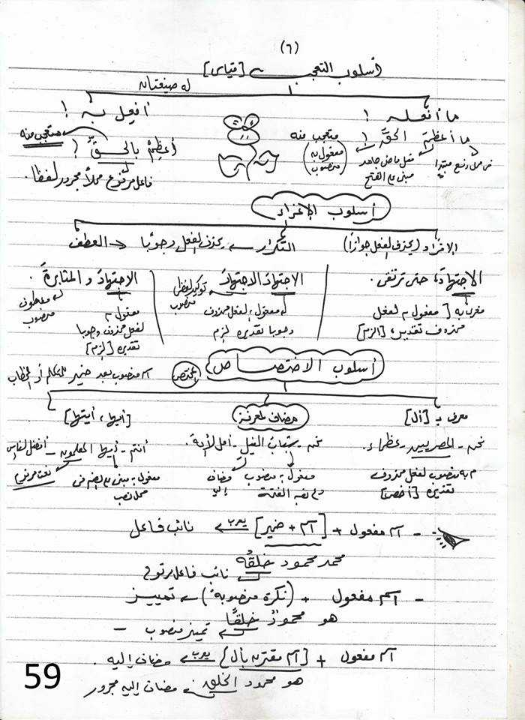 (٦)
أسلوب التعجب ← [قياس]
له صيغتان
ما أفعله !
أفعل به !
ما أعظمَ الحقَّ !
متعجب منه
أعظِمْ بالحقِّ !
متعجب منه
مفعول به منصوب
فعل ماض جامد مبنى على الفتح
فى محل رفع مبتدأ
فاعل مرفوع محلاً مجرور لفظًا.
أسلوب الإغراء
الإفراد (يحذف الفعل جوازًا)
التكرار ← يحذف الفعل وجوبًا ← العطف
الاجتهادَ حتى ترتقى.
الاجتهادَ الاجتهادَ
توكيد لفظى منصوب
الاجتهادَ و المثابرةَ.
مغرى به [مفعول به لفعل
محذوف تقديره [الزم]
مفعول به لفعل محذوف
وجوبا تقديره الزم
مفعول به
لفعل محذوف وجوبا
تقديره [الزم]
معطوف منصوب
أسلوب الاختصاص
المختص
اسم منصوب بعد ضمير للمتكلم أو المخاطب
معرف بـ [أل]
مضاف لمعرفة
[أيها، أيتها]
نحن - المصريين - عظماء.
نحن - شباب النيل - أمل الأمة.
أنتم - أيها المعلمون - أفضل الناس
م به منصوب لفعل محذوف
تقديره [أخص]
مفعول به منصوب
وعلامة نصبه الفتحة
مضاف إليه
مفعول به مبنى على الضم فى
محل نصب
نعت مرفوع
- اسم مفعول + [اسم + ضمير] يعرب ← نائب فاعل
محمد محمود خلقُه
نائب فاعل مرفوع
- اسم مفعول + (نكرة منصوبة) ← تمييز
هو محمودٌ خلقًا
تمييز منصوب -
اسم مفعول + [اسم مقترن بأل] يعرب ← مضاف إليه.
هو محمود الخلقِ ← مضاف إليه مجرور
59